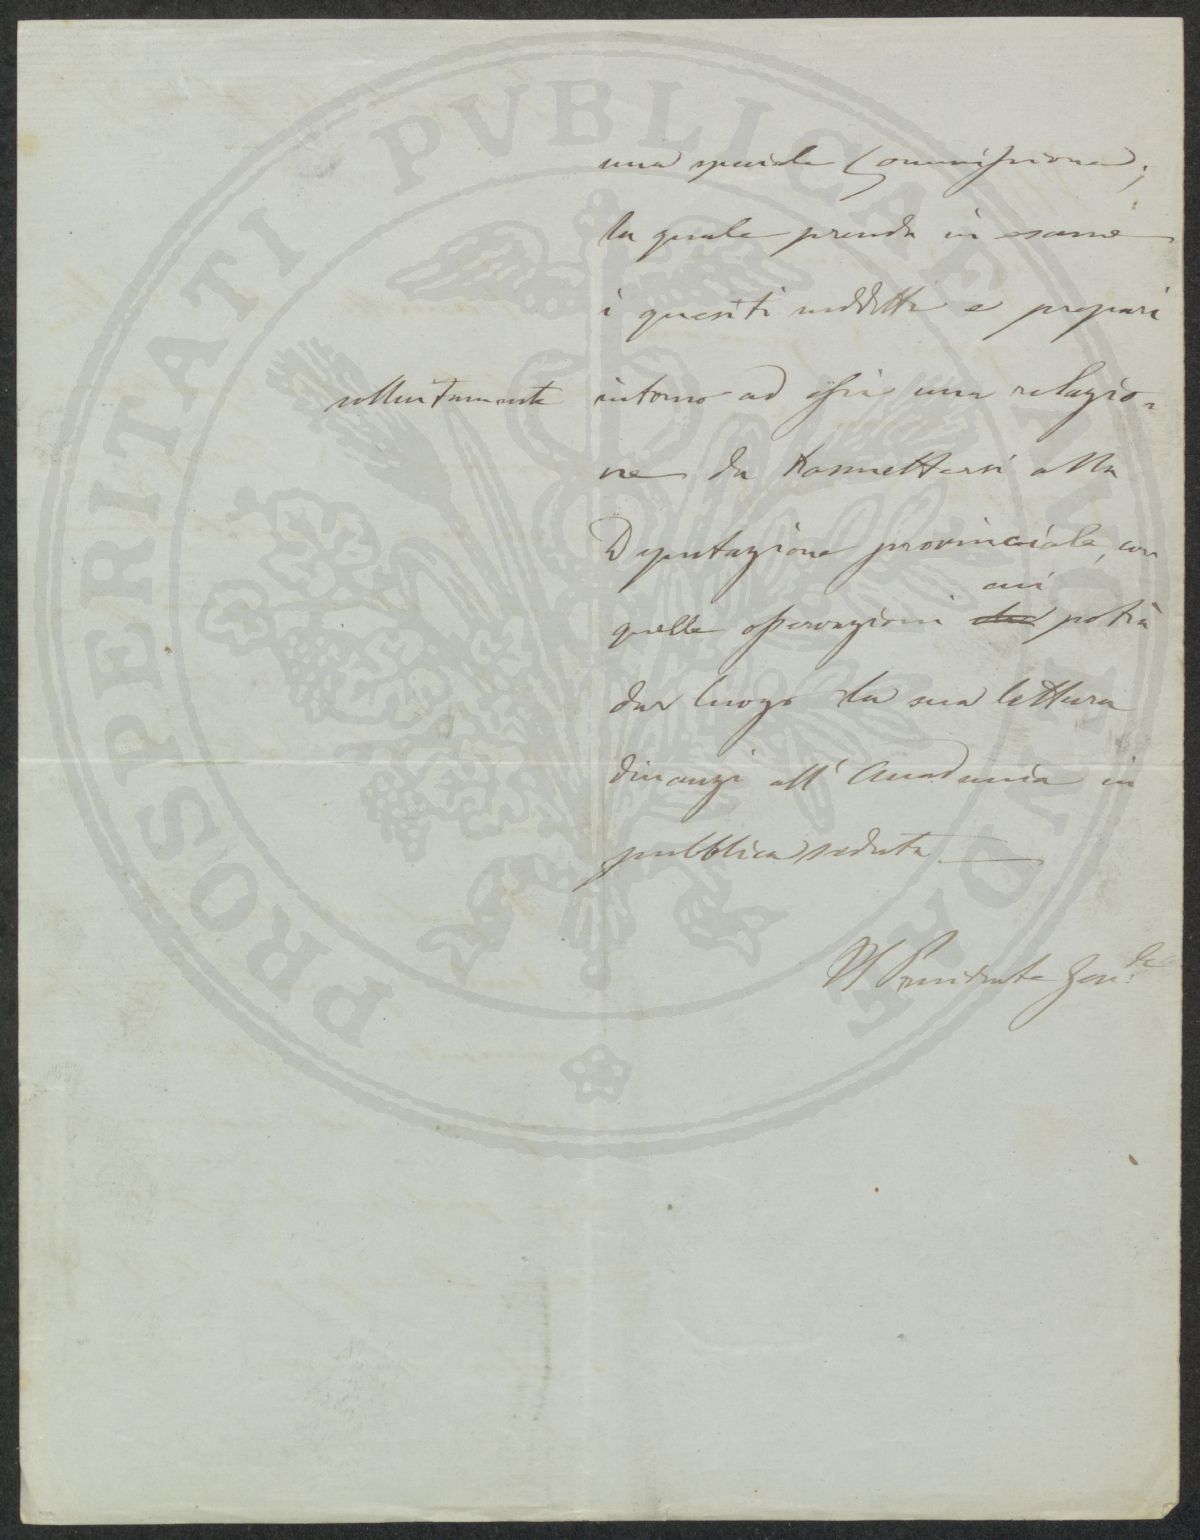 una speciale Commissione,
la quale prenda in esame
i quesiti suddetti e prepari
sollecitamente intorno ad essi una relazio=
ne da trasmettersi alla
Deputazione provinciale, con
cui
quelle osservazioni che potrà
dar luogo la sua lettura
dinanzi all'Accademia in
pubblica seduta
Il Presidente Gen.le
PROSPERITATI PVBLICAE AVGENDAE